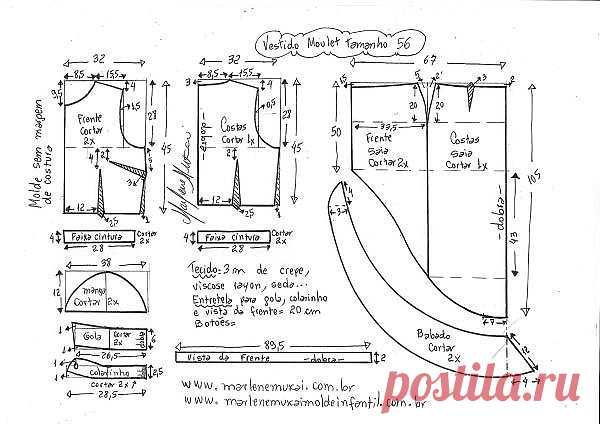 Vestido Moulet Tamanho 56
32
8,5
15,5
4
1,5
28
45
Frente
cortar
2x
4
2
3
12
2,5
2
Molde sem margem
de costura
32
3
8,5
15,5
4
0,5
28
45
Costas
cortar 1x
-dobra-
12
2,5
Marlene Mukai
67
1,5
5
2
3
2
20
20
50
33,5
Frente
saia
cortar 2x
Costas
saia
cortar 1x
105
-dobra-
43
7
4 Faixa cintura Cortar 2x
28
4 Faixa cintura Cortar 2x
28
38
12
manga
cortar 2x
1
Gola
cortar
2x
dobra
6
1
26,5
1
colarinho
2,5
1
cortar 2x
28,5
Tecido: 3 m de crepe,
viscose rayon, seda...
Entretela para gola, colarinho
e vista da frente = 20 cm
Botões=
89,5
Vista da Frente -dobra- 2
4
3
Babado
cortar
2x
12
4
www.marlenemukai.com.br
www.marlenemukaimoldeinfantil.com.br
postila.ru